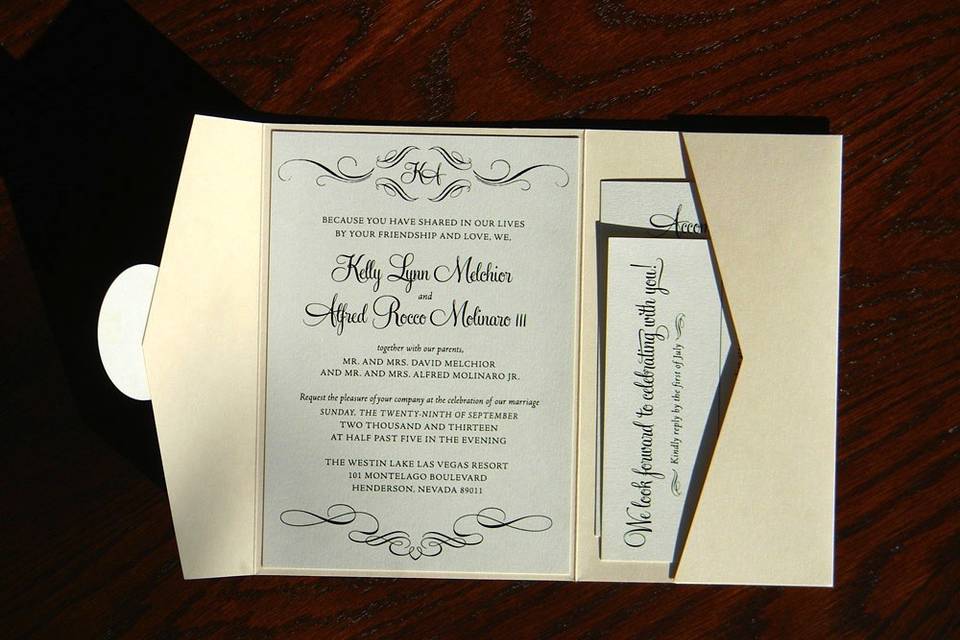 KA
BECAUSE YOU HAVE SHARED IN OUR LIVES
BY YOUR FRIENDSHIP AND LOVE, WE,
Kelly Lynn Melchior
and
Alfred Rocco Molinaro III
together with our parents,
MR. AND MRS. DAVID MELCHIOR
AND MR. AND MRS. ALFRED MOLINARO JR.
Request the pleasure of your company at the celebration of our marriage
SUNDAY, THE TWENTY-NINTH OF SEPTEMBER
TWO THOUSAND AND THIRTEEN
AT HALF PAST FIVE IN THE EVENING
THE WESTIN LAKE LAS VEGAS RESORT
101 MONTELAGO BOULEVARD
HENDERSON, NEVADA 89011
Accom
We look forward to celebrating with you!
Kindly reply by the first of July